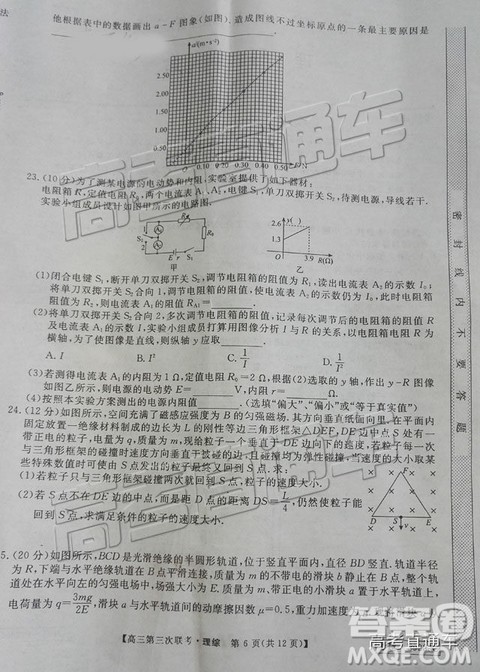 他根据表中的数据画出 a-F 图象(如图),造成图线不过坐标原点的一条最主要原因是
______。
法
a/(m·s⁻²)
2.50
2.00
1.50
1.00
0.50
0
0.10
0.20
0.30
0.40
0.50
23.(10分)为了测某电源的电动势和内阻,实验室提供了如下器材:
电阻箱R,定值电阻R₀,两个电流表A₁、A₂,电键S₁,单刀双掷开关S₂,待测电源,导线若干.
实验小组成员设计如图甲所示的电路图.
甲
乙
2.6
0
3.9
R(Ω)
(1)闭合电键S₁,断开单刀双掷开关S₂,调节电阻箱的阻值为R₁,读出电流表A₂的示数I₀;
将单刀双掷开关S₂合向1,调节电阻箱的阻值,使电流表A₂的示数仍为I₀,此时电阻箱
阻值为R₂,则电流表A₁的阻值R_A1=______.
(2)将单刀双掷开关S₂合向2,调节电阻箱的阻值,记录每次调节后的电阻箱的阻值R
及电流表A₁的示数I,实验小组成员打算用图像分析I与R的关系,以电阻箱电阻R为
横轴,为了使图像是直线,则纵轴y应取______.
A. I
B. I²
C. 1/I
D. 1/I²
(3)若测得电流表A₁的内阻为1Ω,定值电阻R₀=2Ω,根据(2)选取的y轴,作出y-R图像
如图乙所示,则电源的电动势E=______V,内阻r=______Ω.
(4)按照本实验方案测出的电源内阻值______.(选填“偏大”、“偏小”或“等于真实值”)
24.(12分)如图所示,空间充满了磁感应强度为B的匀强磁场,其方向垂直纸面向里.在平面内
固定放置一绝缘材料制成的边长为L的刚性等边三角形框架△DEF,DE边中点S处有一
带正电的粒子,电量为q,质量为m,现给粒子一个垂直于DE边向下的速度,若粒子每一次
与三角形框架的碰撞时速度方向垂直于被碰的边,且碰撞均为弹性碰撞,当速度的大小取某
些特殊数值时可使由S点发出的粒子最终又回到S点.求:
(1)若粒子只与三角形框架碰撞两次就回到S点,粒子的速度大小.
(2)若S点不在DE边的中点,而是距D点的距离DS=L/4,仍然使粒子能
回到S点,求满足条件的粒子的速度大小.
F
D
S
E
5.(20分)如图所示,BCD是光滑绝缘的半圆形轨道,位于竖直平面内,直径BD竖直轨道半径
为R,下端与水平绝缘轨道在B点平滑连接,质量为m的不带电的滑块b静止在B点.整个轨
道处在水平方向左的匀强电场中,场强大小为E.现有一质量为m、带正电的小滑块a置于水平轨道上,
电量为q=3mg/2E,滑块a与水平轨道间的动摩擦因数μ=0.5,重力加速度为
【高三第三次联考·理综 第6页(共12页)】
密封线内不要答题
高考直通车
高考直通车